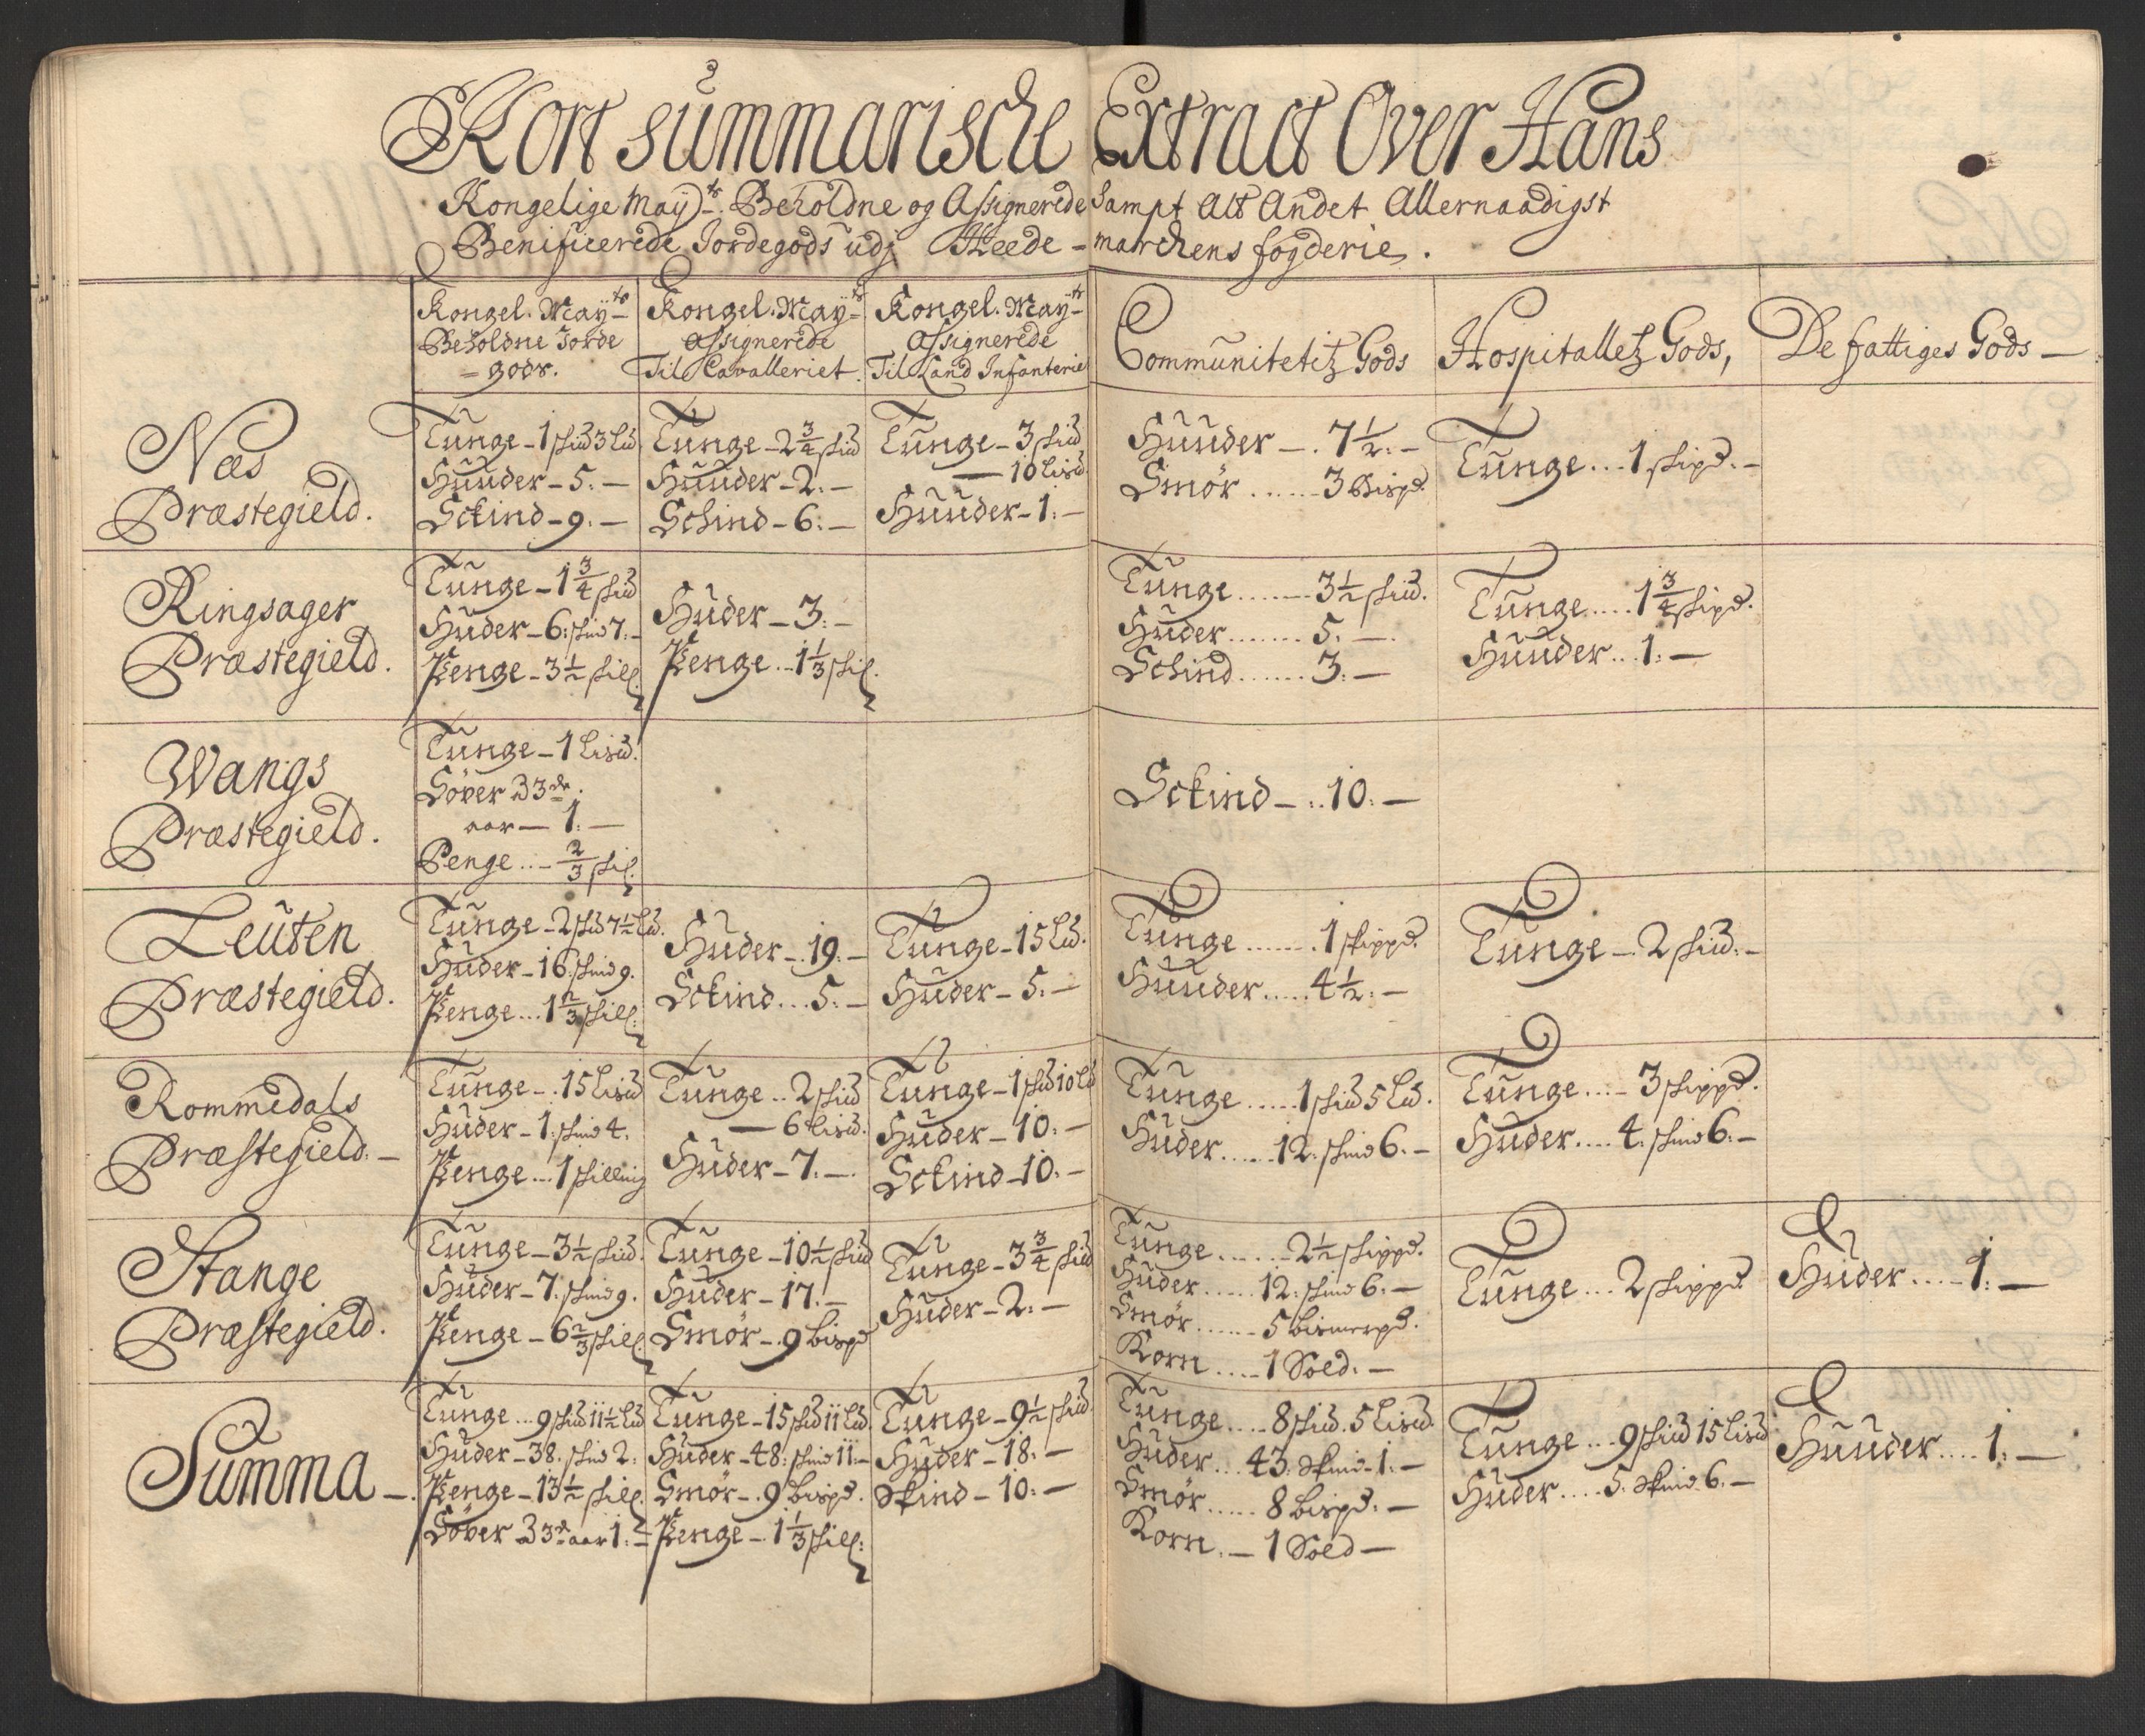 Kort summarische Extract Over Hans
Kongelige May:ts Beholdne og Assignerede Sampt Alt Andet Allernaadigst
Benificerede Jordegods udj Heede-marchens fogderie.
Kongel. Mayts
Beholdne Jorde
=gods.
Kongel. Mayts
Assignerede
Til Cavalleriet.
Kongel. Mayts
Assignerede
Til Land Infanterie
Communitetitz Gods
Hospitalletz Gods,
De fattiges Gods —
Næs
Præstegield.
Tunge - 1 skud 3 Lud
Huuder - 5. —
Sckind - 9. —
Tunge - 2 3/4 skud
Huuder - 2. —
Schind - 6. —
Tunge - 3 skud
— 10 Lisud
Huuder - 1. —
Huuder — . 7 1/2. —
Smör ...... 3 Bispd.
Tunge ... 1 skipd. —
Ringsager
Præstegield.
Tunge - 1 3/4 skud
Huder - 6: skind 7. —
Penge - 3 1/2 skill.
Huder - 3. —
Penge .. 1 1/3 skil.
Tunge ....... 3 1/2 skud.
Huder ....... 5. —
Schind ...... 3. —
Tunge .... 1 3/4 skipd.
Huuder .. 1. —
Wangs
Præstegield.
Tunge - 1 Lisud.
Söver 3 3de.
aar — 1. —
Penge .. - 2/3 skil.
Sckind - .. 10. —
Leuten
Præstegield.
Tunge - 2 skud 7 1/2 Lud.
Huder - 16. skind 9.
Penge ... 1 2/3 skill.
Huder - . 19. —
Sckind ... 5. —
Tunge - 15 Lud.
Huder - 5. —
Tunge ....... 1 skippd.
Huuder ..... 4 1/2. —
Tunge - . 2 skud. —
Rommedals
Præstegield. —
Tunge - . 15 Lisud
Huder - 1. skind 4.
Penge ... 1 skilling
Tunge .. 2 skud
— 6 Lisud.
Huder - 7. —
Tunge - 1 skud 10 Lud
Huder - 10. —
Sckind - 10. —
Tunge ..... 1 skud 5 Lud.
Huder ..... 12. skind 6. —
Tunge .... - 3 skippd.
Huder .... 4. skind 6. —
Stange
Præstegield.
Tunge - 3 1/2 skud.
Huder - 7. skind 9.
Penge - 6 2/3 skill.
Tunge - 10 1/2 skud
Huder - 17. —
Smör - . 9 bispd
Tunge - 3 3/4 skud
Huder - 2. —
Tunge ..... - 2 1/2 skippd.
Huder ...... 12. skind 6. —
Smör ...... - 5 bismerpd.
Korn .... - 1 Sold. —
Tunge ... 2 skippd.
Huder .... - 1. —
Summa —
Tunge ... 9 skud 11 1/2 Lud
Huder - 38. skind 2.
Penge - 13 1/2 skill.
Söver 3 3de aar 1. —
Tunge - 15 skud 11 Lud.
Huder - 48: skind 11. —
Smör - . 9 bispd.
Penge - . 1 1/3 skill:
Tunge - 9 1/2 skud.
Huder - 18. —
Skind - 10. —
Tunge .... - 8 skud. 5 Lisud.
Huder ... 43. Skind - 1. —
Smör ..... 8 bispd. —
Korn. — 1 Sold —
Tunge ... 9 skud 15 Lisud
Huder .... 5. Skind 6. —
Huuder .... 1. —